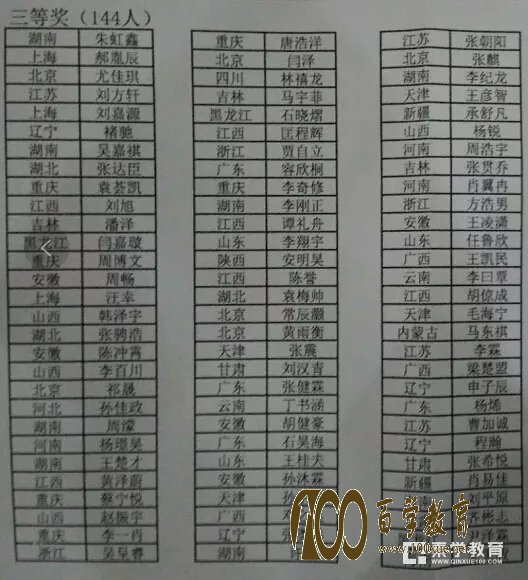 三等奖（144人）
湖南 朱虹鑫
上海 郝胤辰
北京 尤佳琪
江苏 刘方轩
上海 刘嘉源
辽宁 褚驰
湖南 吴嘉祺
湖北 张达臣
重庆 袁荟凯
江西 刘旭
吉林 潘泽
黑龙江 闫嘉璇
重庆 周博文
安徽 周畅
上海 汪幸
山西 韩泽宇
湖北 张骋浩
安徽 陈冲霄
山西 李百川
北京 祁晟
河北 孙佳政
湖南 周濛
河南 杨璟昊
湖南 王楚才
江西 黄泽蔚
重庆 蔡宁悦
山西 赵振宇
重庆 李一肖
浙江 吴呈睿
重庆 唐浩洋
北京 闫泽
四川 林禧龙
吉林 马宇菲
黑龙江 石晓熠
江西 匡程辉
浙江 贾自立
广东 容欣桐
重庆 李奇修
湖南 李刚正
江西 谭礼舟
山东 李翔宇
陕西 安明昊
江西 陈誉
湖北 袁梅帅
北京 常辰灏
北京 黄雨衡
天津 张震
甘肃 刘汉青
广东 张健霖
云南 丁书涵
安徽 胡健豪
广东 石昊海
山东 王桂夫
安徽 孙沐霖
天津 孙
广西
辽宁 张
湖南
江苏 张朝阳
北京 张麒
湖南 李纪龙
天津 王彦智
新疆 承舒凡
山西 杨锐
河南 周浩宇
吉林 张贯乔
河南 肖翼冉
浙江 方浩男
安徽 王凌潇
山东 任鲁欣
广西 王凯民
云南 李曰章
江西 胡倞成
天津 毛海宁
内蒙古 马东祺
江苏 李霖
广西 梁楚盟
辽宁 申子辰
广东 杨烯
江苏 曹加诚
辽宁 程瀚
甘肃 张希悦
新疆 肖易佳
南 刘平原
彬志
泽霖
100 百学教育
www.100xue.net
秦学教育
www.qinxue100.com